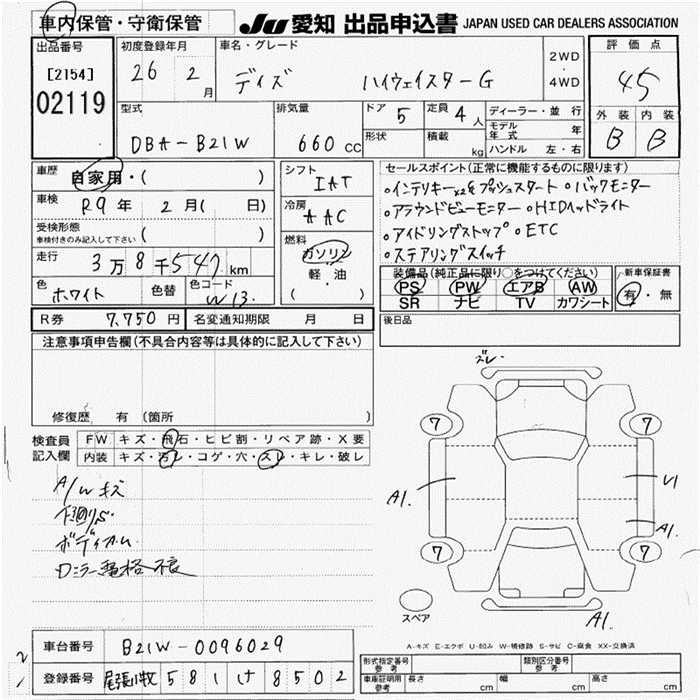 車内保管・守衛保管
JU 愛知 出品申込書 JAPAN USED CAR DEALERS ASSOCIATION
出品番号
[2154]
02119
初度登録年月
26 2月
車名・グレード
デイズ ハイウェイスターG
2WD・4WD
評価点
4.5
外装 内装
B B
型式
DBA-B21W
排気量
660 CC
ドア 5
形状
定員 4人
積載 kg
ディーラー・並行
モデル年式 年
ハンドル 左・右
車歴
自家用・( )
車検
R9年 2月( 日)
受検形態
車検付きのみ記入して下さい ( )
走行
3万8千547km
色
ホワイト
色替
色コード
W13.
シフト
IAT
冷房
AAC
燃料
ガソリン
軽・油
( ・ )
セールスポイント(正常に機能するものに限ります)
○インテリキーx2&プッシュスタート ○バックモニター
○アラウンドビューモニター ○HIDヘッドライト
○アイドリングストップ ○ETC
○ステアリングスイッチ
装備品(純正品に限り○をつけてください)
PS PW エアB AW
SR ナビ TV カワシート
新車保証書
有・無
R券 7,750円
名変通知期限 月 日
後日品
注意事項申告欄(不具合内容等は具体的に記入して下さい)
修復歴 有 (箇所 )
検査員記入欄
FW キズ・飛石・ヒビ割・リペア跡・X要
内装 キズ・汚レ・コゲ・穴・スレ・キレ・破レ
A/Wキズ
下廻リS.
ボディ
Dミラー格不良
ズレ.
7 7
A1. U1
A1
7 7
スペア
A1.
A-キズ E-エクボ U-凹み W-補修跡 S-サビ C-腐食 XX-交換済
車台番号
B21W-0096029
登録番号
尾張小牧 581 け 8502
型式指定番号 参考
類別区分番号 参考
車庫証明用 参考
長さ cm 幅 cm 高さ cm